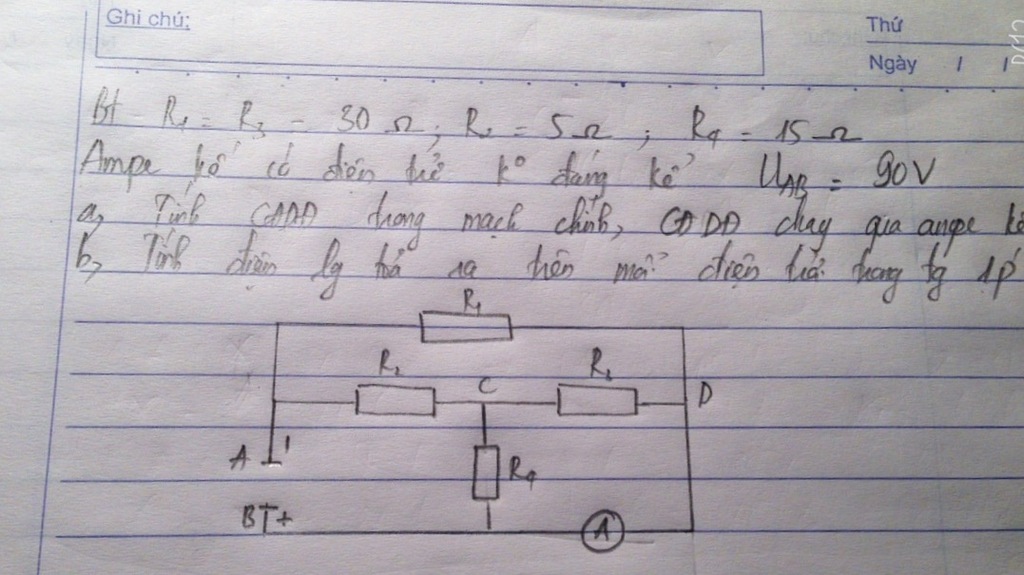 Ghi chú:
Thứ
Ngày / /
Bt R₁ = R₃ = 30 Ω; R₂ = 5Ω ; R₄ = 15Ω
Ampe kế có điện trở k° đáng kể U_AB = 90V
a, Tính CĐDĐ trong mạch chính, CĐDĐ chạy qua ampe kế
b, Tính điện lg toả ra trên mỗi điện trở trong tg 1p
R₁
R₂ C R₃ D
A
R₄
B + A